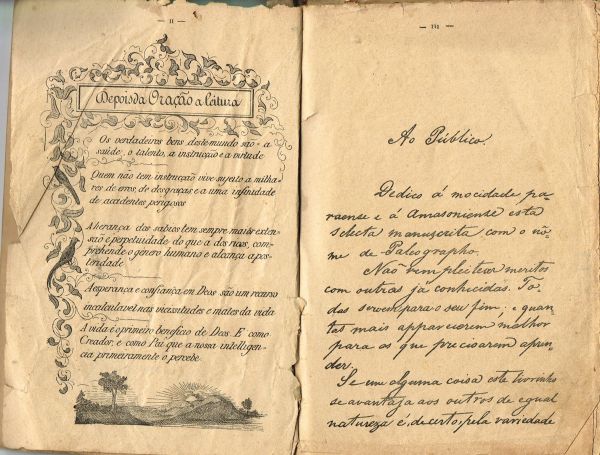 — II —
Depois da Oração a leitura
Os verdadeiros bens deste mundo são a
saúde, o talento, a instrucção e a virtude
Quem não tem instrucção vive sujeito a milha-
res de erros, de desgraças e a uma infinidade
de accidentes perigosos
A herança dos sabios tem sempre maior exten-
saõ e perpetuidade do que a dos ricos, com-
prehende o género humano e alcança a pos-
teridade
A esperança e confiança em Deos são um recurso
incalculavel nas vicissitudes e males da vida
A vida é o primeiro beneficio de Deos. E' como
Creador, e como Pai que a nossa intelligen-
cia primeiramente o percebe
— III —
Ao Público.
Dedico á mocidade pa-
raense e á Amasoniense esta
selecta manuscrita com o no-
me de Paleographo.
Naõ vem pleitear meritos
com outras já conhecidas. To-
das servem para o seu fim; e quan-
tas mais apparecerem, melhor
para os que precisarem apren-
der.
Se em alguma coisa este livrinho
se avantaja aos outros de egual
natureza é, decerto, pela variedade